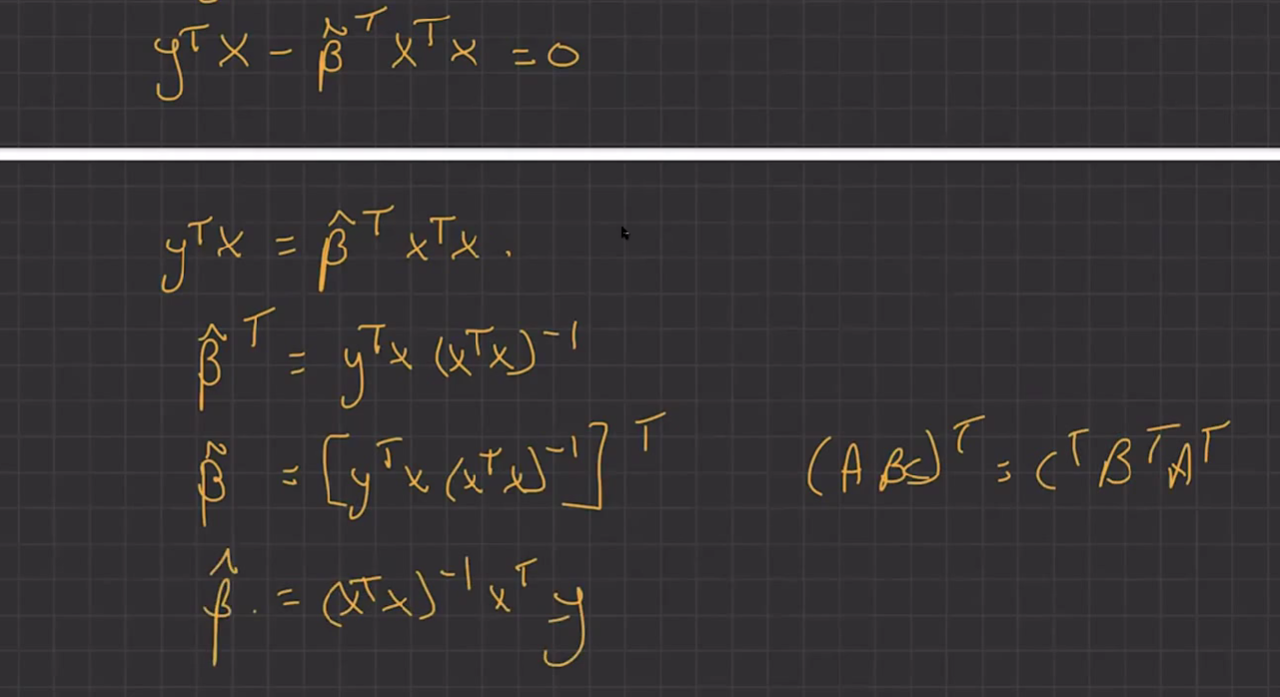 yᵀX − β̂ᵀ XᵀX = 0
yᵀX = β̂ᵀ XᵀX .
β̂ᵀ = yᵀX (XᵀX)⁻¹
β̂ = [yᵀX (XᵀX)⁻¹]ᵀ (ABC)ᵀ = CᵀBᵀAᵀ
β̂ . = (XᵀX)⁻¹ Xᵀ y